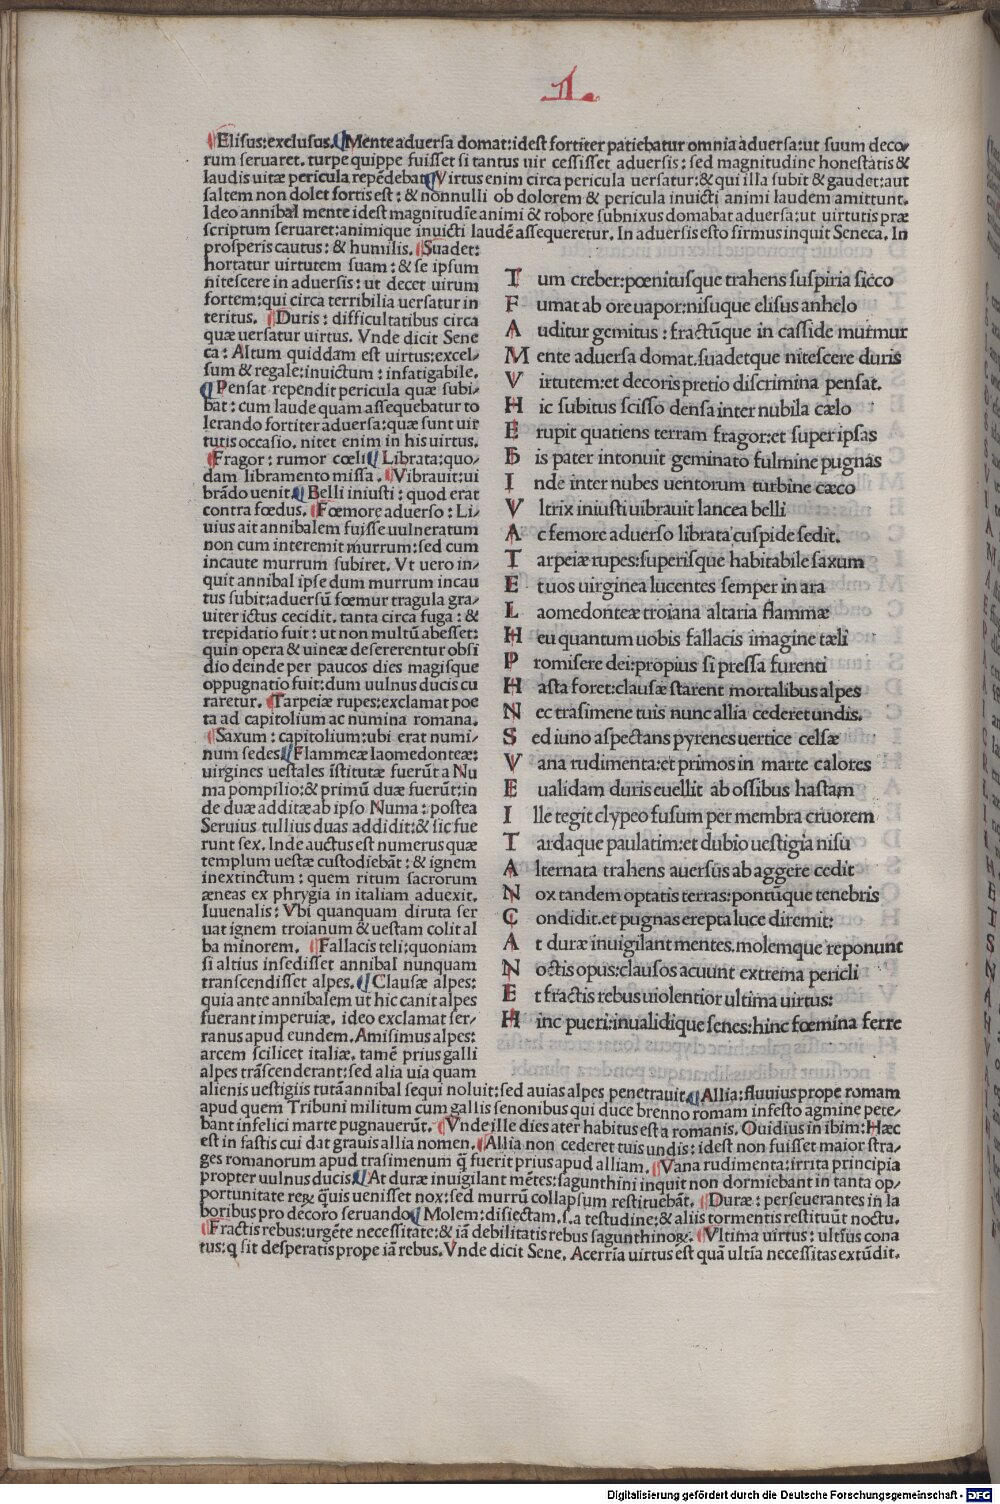 1
¶Elisus:exclusus.¶Mente aduersa domat:idest fortiter patiebatur omnia aduersa:ut suum deco-
rum seruaret. turpe quippe fuisset si tantus uir cessisset aduersis: sed magnitudine honestatis &
laudis uitæ pericula repēdebat¶Virtus enim circa pericula uersatur:& qui illa subit & gaudet:aut
saltem non dolet fortis est: & nonnulli ob dolorem & pericula inuicti animi laudem amittunt.
Ideo annibal mente idest magnitudīe animi & robore subnixus domabat aduersa:ut uirtutis præ
scriptum seruaret:animique inuicti laudē assequeretur. In aduersis esto firmus inquit Seneca. In
prosperis cautus: & humilis. ¶Suadet:
hortatur uirtutem suam: & se ipsum
nitescere in aduersis: ut decet uirum
fortem:qui circa terribilia uersatur in
teritus. ¶Duris: difficultatibus circa
quæ uersatur uirtus. Vnde dicit Sene
ca: Altum quiddam est uirtus:excel-
sum & regale:inuictum: infatigabile.
¶Pensat rependit pericula quæ subi-
bat: cum laude quam assequebatur to
lerando fortiter aduersa:quæ sunt uir
tutis occasio. nitet enim in his uirtus.
¶Fragor: rumor cœli¶Librata:quo-
dam libramento missa. ¶Vibrauit:ui
brādo uenit.¶Belli iniusti: quod erat
contra fœdus. ¶Fœmore aduerso: Li-
uius ait annibalem fuisse uulneratum
non cum interemit murrum:sed cum
incaute murrum subiret. Vt uero in-
quit annibal ipse dum murrum incau
tus subit:aduersū fœmur tragula gra-
uiter ictus cecidit. tanta circa fuga: &
trepidatio fuit: ut non multū abesset:
quin opera & uineæ desererentur obsi
dio deinde per paucos dies magisque
oppugnatio fuit:dum uulnus ducis cu
raretur. ¶Tarpeiæ rupes:exclamat poe
ta ad capitolium ac numina romana.
¶Saxum: capitolium:ubi erat numi-
num sedes¶Flammeæ laomedonteæ:
uirgines uestales īstitutæ fuerūt a Nu
ma pompilio:& primū duæ fuerūt:in
de duæ additæ ab ipso Numa: postea
Seruius tullius duas addidit:& sic fue
runt sex. Inde auctus est numerus quæ
templum uestæ custodiebāt: & ignem
inextinctum: quem ritum sacrorum
æneas ex phrygia in italiam aduexit.
Iuuenalis: Vbi quanquam diruta ser
uat ignem troianum & uestam colit al
ba minorem. ¶Fallacis teli:quoniam
si altius insedisset annibal nunquam
transcendisset alpes.¶Clausæ alpes:
quia ante annibalem ut hic canit alpes
fuerant imperuiæ. ideo exclamat ser-
ranus apud eundem. Amisimus alpes:
arcem scilicet italiæ. tamē prius galli
alpes trāscenderant:sed alia uia quam
T um creber:pœnitusque trahens suspiria sicco
F umat ab ore uapor:nisuque elisus anhelo
A uditur gemitus: fractūque in casside murmur
M ente aduersa domat.suadetque nitescere duris
V irtutem:et decoris pretio discrimina pensat.
H ic subitus scisso densa inter nubila cælo
E rupit quatiens terram fragor:et super ipsas
B is pater intonuit geminato fulmine pugnas
I nde inter nubes uentorum turbine cæco
V ltrix iniusti uibrauit lancea belli
A c femore aduerso librata cuspide sedit.
T arpeiæ rupes:superisque habitabile saxum
E t uos uirginea lucentes semper in ara
L aomedonteæ troiana altaria flammæ
H eu quantum uobis fallacis imagine tæli
P romisere dei:propius si pressa furenti
H asta foret:clausæ starent mortalibus alpes
N ec trasimene tuis nunc allia cederet undis.
S ed iuno aspectans pyrenes uertice celsæ
V ana rudimenta:et primos in marte calores
E ualidam duris euellit ab ossibus hastam
I lle tegit clypeo fusum per membra cruorem
T ardaque paulatim:et dubio uestigia nisu
A lternata trahens auersus ab aggere cedit
N ox tandem optatis terras:pontūque tenebris
C ondidit.et pugnas erepta luce diremit:
A t duræ inuigilant mentes.molemque reponunt
N octis opus:clausos acuunt extrema pericli
E t fractis rebus uiolentior ultima uirtus:
H inc pueri:inualidique senes:hinc fœmina ferre
alienis uestigiis tutā annibal sequi noluit:sed auias alpes penetrauit.¶Allia:fluuius prope romam
apud quem Tribuni militum cum gallis senonibus qui duce brenno romam infesto agmine pete-
bant infelici marte pugnauerūt. ¶Vnde ille dies ater habitus est a romanis. Ouidius in ibim:Hæc
est in fastis cui dat grauis allia nomen.¶Allia non cederet tuis undis: idest non fuisset maior stra-
ges romanorum apud trasimenum q̄ fuerit prius apud alliam.¶Vana rudimenta:irrita principia
propter uulnus ducis.¶At duræ inuigilant mētes:sagunthini inquit non dormiebant in tanta op-
portunitate reꝝ q̄uis uenisset nox:sed murrū collapsum restituebāt. ¶Duræ: perseuerantes in la
boribus pro decoro seruando¶Molem:disiectam.s.a testudine:& aliis tormentis restituūt noctu.
¶Fractis rebus:urgēte necessitate:& iā debilitatis rebus sagunthinoꝝ. ¶Vltima uirtus: ultīus cona
tus:q sit desperatis prope iā rebus. Vnde dicit Sene. Acerria uirtus est quā ultīa necessitas extūdit.
Digitalisierung gefördert durch die Deutsche Forschungsgemeinschaft - DFG